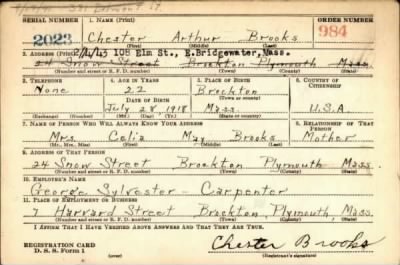 SERIAL NUMBER 1. NAME (Print) ORDER NUMBER
2023 Chester Arthur Brooks 984
(First) (Middle) (Last)
2. ADDRESS (Print) 2/2/43 108 Elm St., E.Bridgewater, Mass.
24 Snow Street Brockton Plymouth Mass.
(Number and street or R. F. D. number) (Town) (County) (State)
3. TELEPHONE 4. AGE IN YEARS 5. PLACE OF BIRTH 6. COUNTRY OF CITIZENSHIP
None 22 Brockton
(Town or county)
DATE OF BIRTH
July 28 1918 Mass U.S.A.
(Mo.) (Day) (Yr.) (State or country)
7. NAME OF PERSON WHO WILL ALWAYS KNOW YOUR ADDRESS 8. RELATIONSHIP OF THAT PERSON
Mrs. Celia May Brooks Mother
(Mr., Mrs., Miss) (First) (Middle) (Last)
9. ADDRESS OF THAT PERSON
24 Snow Street Brockton Plymouth Mass.
(Number and street or R. F. D. number) (Town) (County) (State)
10. EMPLOYER'S NAME
George Sylvester - Carpenter
11. PLACE OF EMPLOYMENT OR BUSINESS
7 Harvard Street Brockton, Plymouth, Mass.
(Number and street or R. F. D. number) (Town) (County) (State)
I AFFIRM THAT I HAVE VERIFIED ABOVE ANSWERS AND THAT THEY ARE TRUE.
REGISTRATION CARD
D. S. S. Form 1 Chester Brooks
(Registrant's signature)